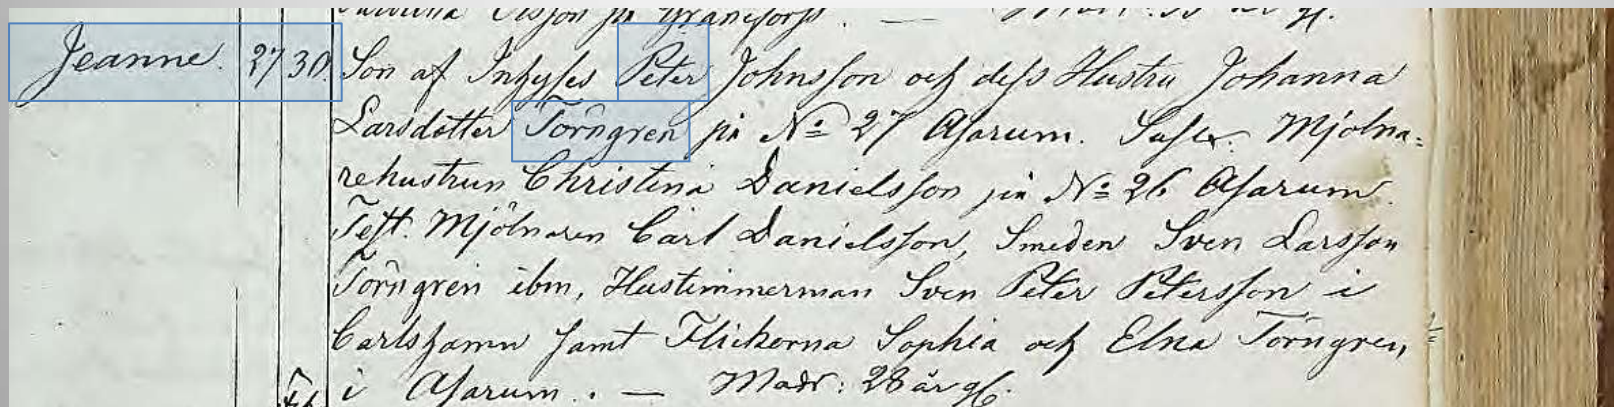 Olsson på Granefors. —
Jeanne. 27 30. Son af Inhyses Peter Johnsson och dess Hustru Johanna
Larsdotter Törngren på No 27 Asarum. Susc. Mjölna-
rehustrun Christina Danielsson på No 26 Asarum.
Test. Mjölnaren Carl Danielsson, Smeden Sven Larsson
Törngren ibm, Hustimmerman Sven Peter Petersson i
Carlshamn samt Flickorna Sophia och Elna Törngren,
i Asarum. — Modr: 28 år gl.